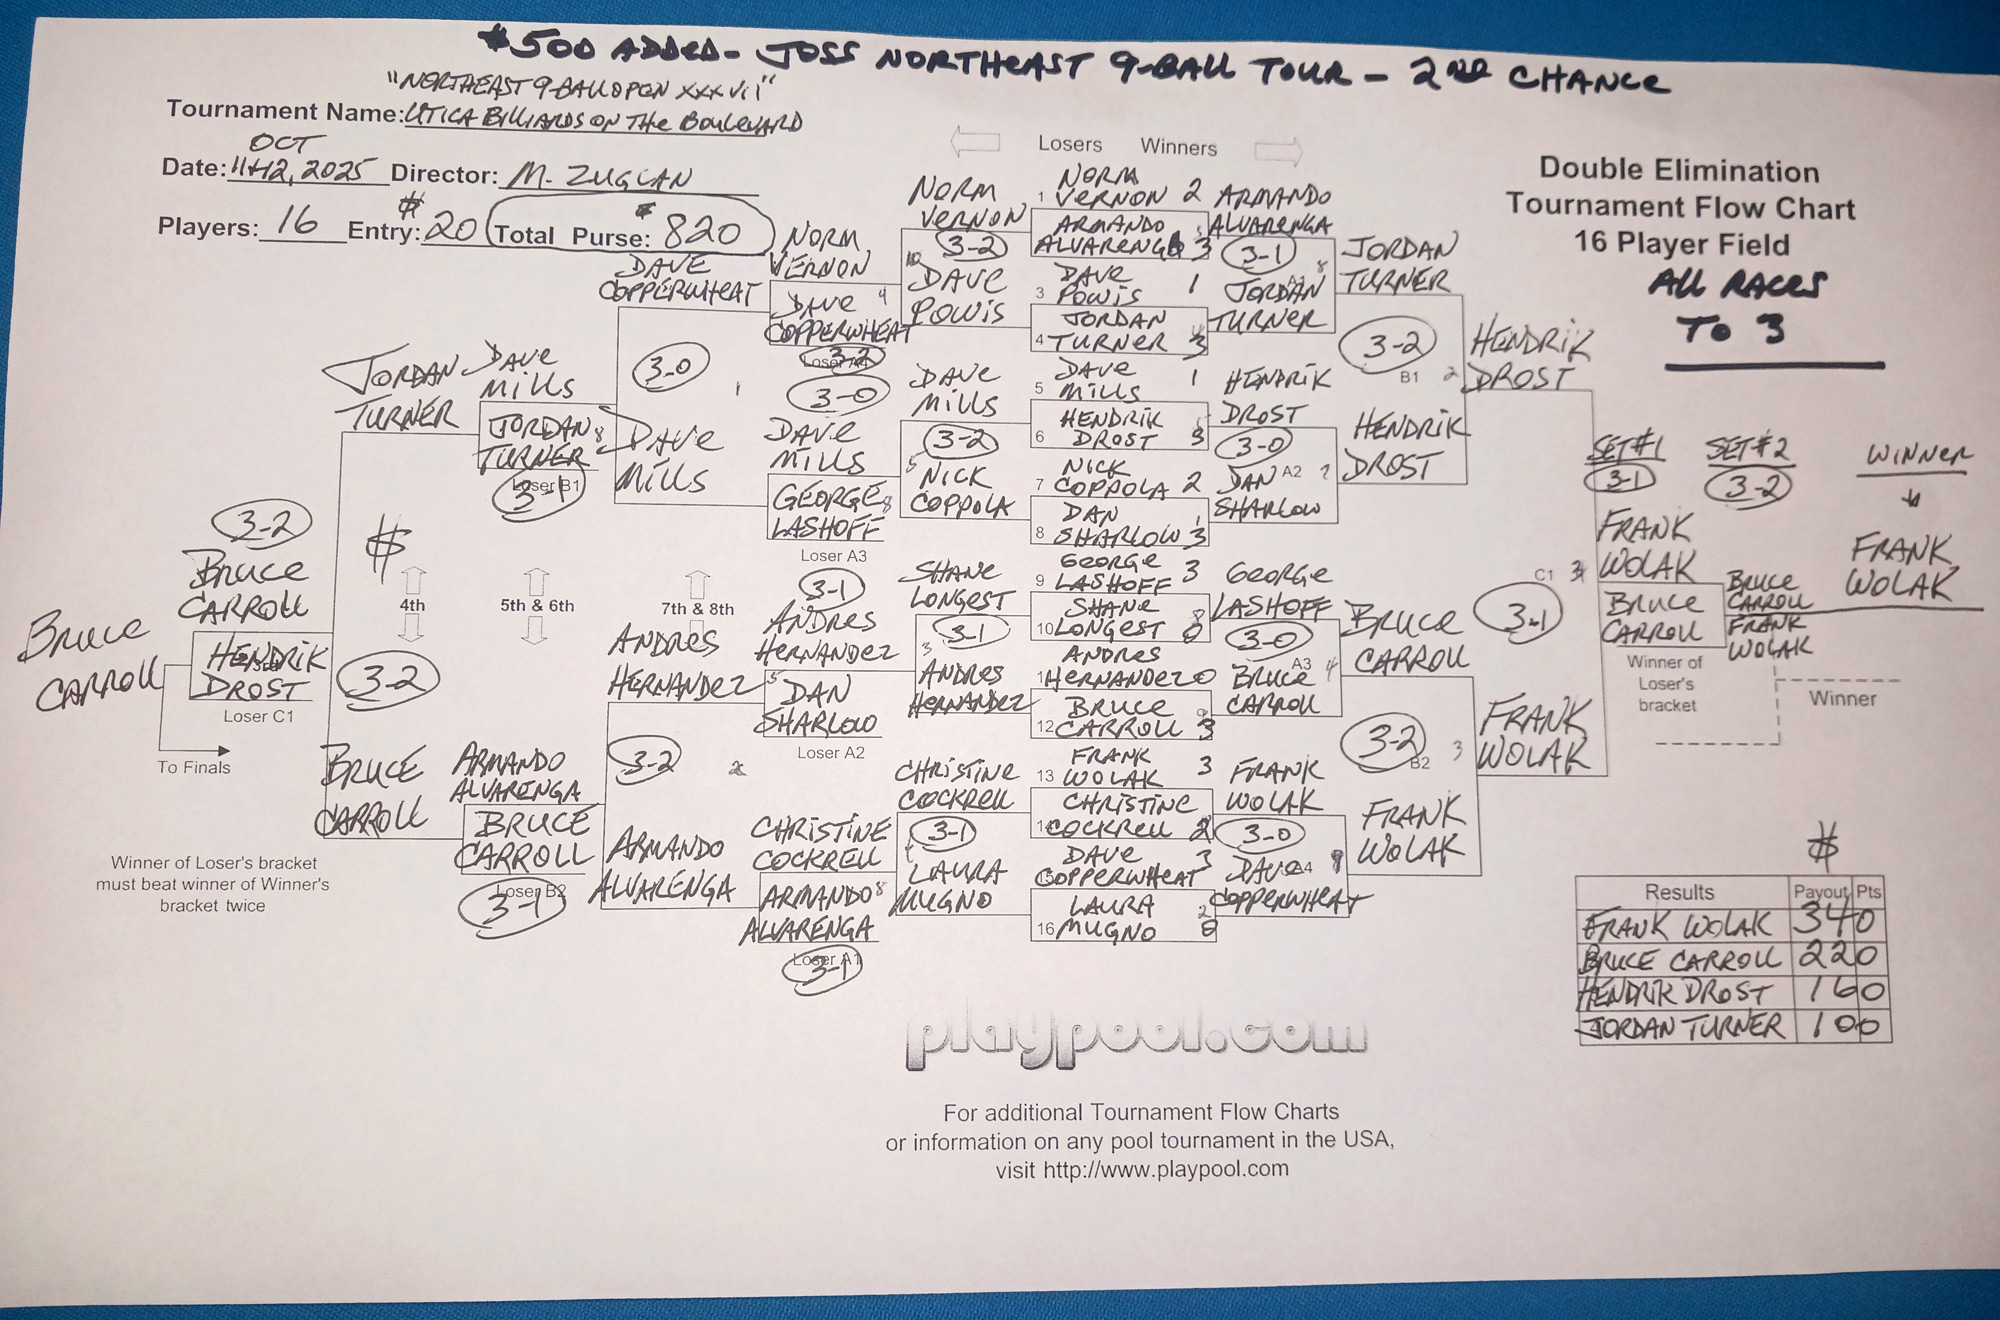 $500 ADDED - JOSS NORTHEAST 9-BALL TOUR - 2ND CHANCE
"NORTHEAST 9-BALL OPEN XXXVII"
Tournament Name: UTICA BILLIARDS ON THE BOULEVARD
OCT
Date: 11+12, 2025 Director: M. ZUGLAN
Players: 16 Entry: $20 Total Purse: $820
Losers Winners
Double Elimination
Tournament Flow Chart
16 Player Field
ALL RACES
TO 3
1 NORM VERNON 2
ARMANDO ALVARENGA 3
3 DAVE POWIS 1
4 JORDAN TURNER 3
5 DAVE MILLS 1
6 HENDRIK DROST 3
7 NICK COPPOLA 2
8 DAN SHARLOW 3
9 GEORGE LASHOFF 3
10 SHANE LONGEST 0
11 ANDRES HERNANDEZ 0
12 BRUCE CARROLL 3
13 FRANK WOLAK 3
14 CHRISTINE COCKRELL 2
DAVE COPPERWHEAT 3
16 LAURA MUGNO 0
ARMANDO ALVARENGA
3-1
JORDAN TURNER
HENDRIK DROST
3-0
A2
DAN SHARLOW
GEORGE LASHOFF
3-0
A3
BRUCE CARROLL
FRANK WOLAK
3-0
A4
DAVE COPPERWHEAT
JORDAN TURNER
3-2
B1
HENDRIK DROST
BRUCE CARROLL
3-2
B2
FRANK WOLAK
HENDRIK DROST
3-1
C1
FRANK WOLAK
SET #1
3-1
SET #2
3-2
WINNER
FRANK WOLAK
BRUCE CARROLL
Winner of
Loser's
bracket
BRUCE CARROLL
FRANK WOLAK
FRANK WOLAK
Winner
NORM VERNON
3-2
DAVE POWIS
DAVE MILLS
3-2
NICK COPPOLA
SHANE LONGEST
3-1
ANDRES HERNANDEZ
CHRISTINE COCKRELL
3-1
LAURA MUGNO
NORM VERNON
DAVE COPPERWHEAT
Loser A4
3-2
3-0
DAVE MILLS
GEORGE LASHOFF
Loser A3
3-1
ANDRES HERNANDEZ
DAN SHARLOW
Loser A2
CHRISTINE COCKRELL
ARMANDO ALVARENGA
Loser A1
3-1
DAVE COPPERWHEAT
3-0
DAVE MILLS
7th & 8th
ANDRES HERNANDEZ
3-2
ARMANDO ALVARENGA
DAVE MILLS
JORDAN TURNER
Loser B1
3-1
5th & 6th
ARMANDO ALVARENGA
BRUCE CARROLL
Loser B2
3-1
JORDAN TURNER
$
4th
3-2
BRUCE CARROLL
3-2
BRUCE CARROLL
HENDRIK DROST
Loser C1
BRUCE CARROLL
To Finals
Winner of Loser's bracket
must beat winner of Winner's
bracket twice
$
Results Payout Pts
FRANK WOLAK 340
BRUCE CARROLL 220
HENDRIK DROST 160
JORDAN TURNER 100
playpool.com
For additional Tournament Flow Charts
or information on any pool tournament in the USA,
visit http://www.playpool.com